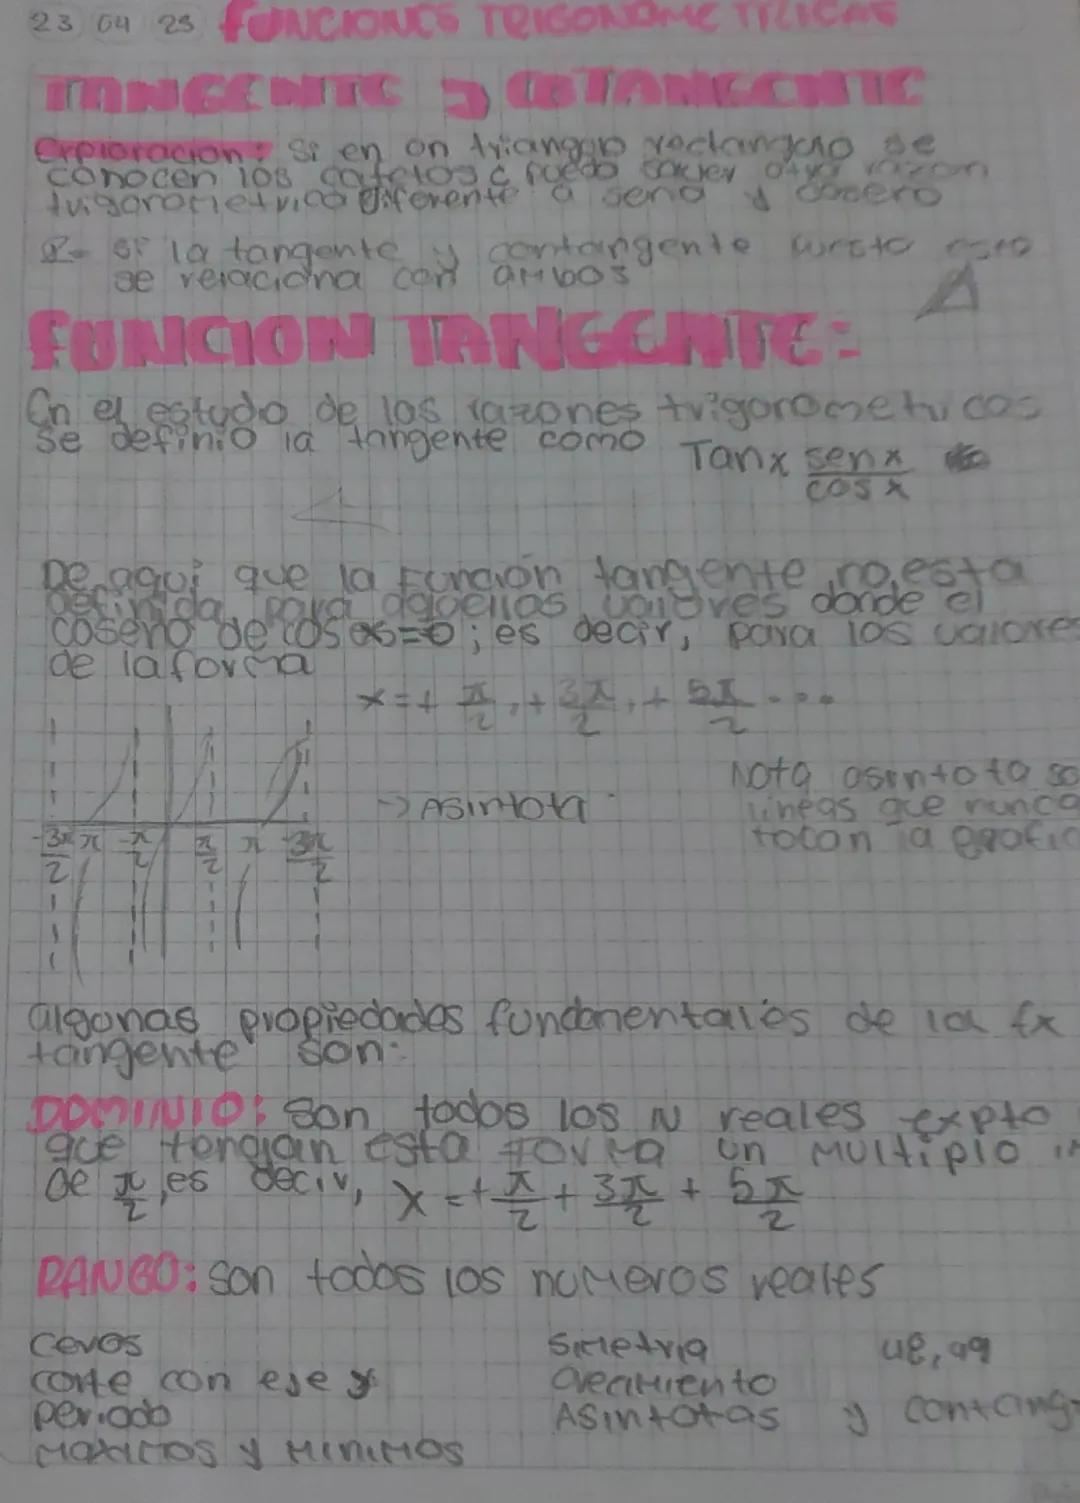 23 04 23 FUNCIONES TRIGONOMETRICAS
TANGENTE Y COTANGENTE
Exploracion: Si en un triangulo rectangulo se
conocen los catetos ¿ puedo saber otra razon
trigonometrica diferente a seno y coseno
R- SI la tangente y contangente
se relaciona con ambos
FUNCION TANGENTE:
En el estudio de las razones trigonometricas
se definio la tangente como Tanx senx
cosx
De aqui que la Función tangente no esta
definida para aquellos valores donde el
coseno de cos =0; es decir, para los valores
de la forma
x=+ π/2,+ 3π/2,+ 5π/2 ...
Nota asintota so
-> Asintota lineas que nunca
tocan la grafic
-3π/2 π -π/2 π/2 π -3π/2
algunas propiedades fundamentales de la fx
tangente son:
DOMINIO: Son todos los N reales expto
que tengan esta forma un multiplo in
de π/2, es decir, x=+π/2 + 3π/2 + 5π/2
RANGO: son todos los numeros reales
Ceros Simetria 48, 49
corte con eje y Crecimiento
periodo Asintotas y contang-
Maximos y Minimos